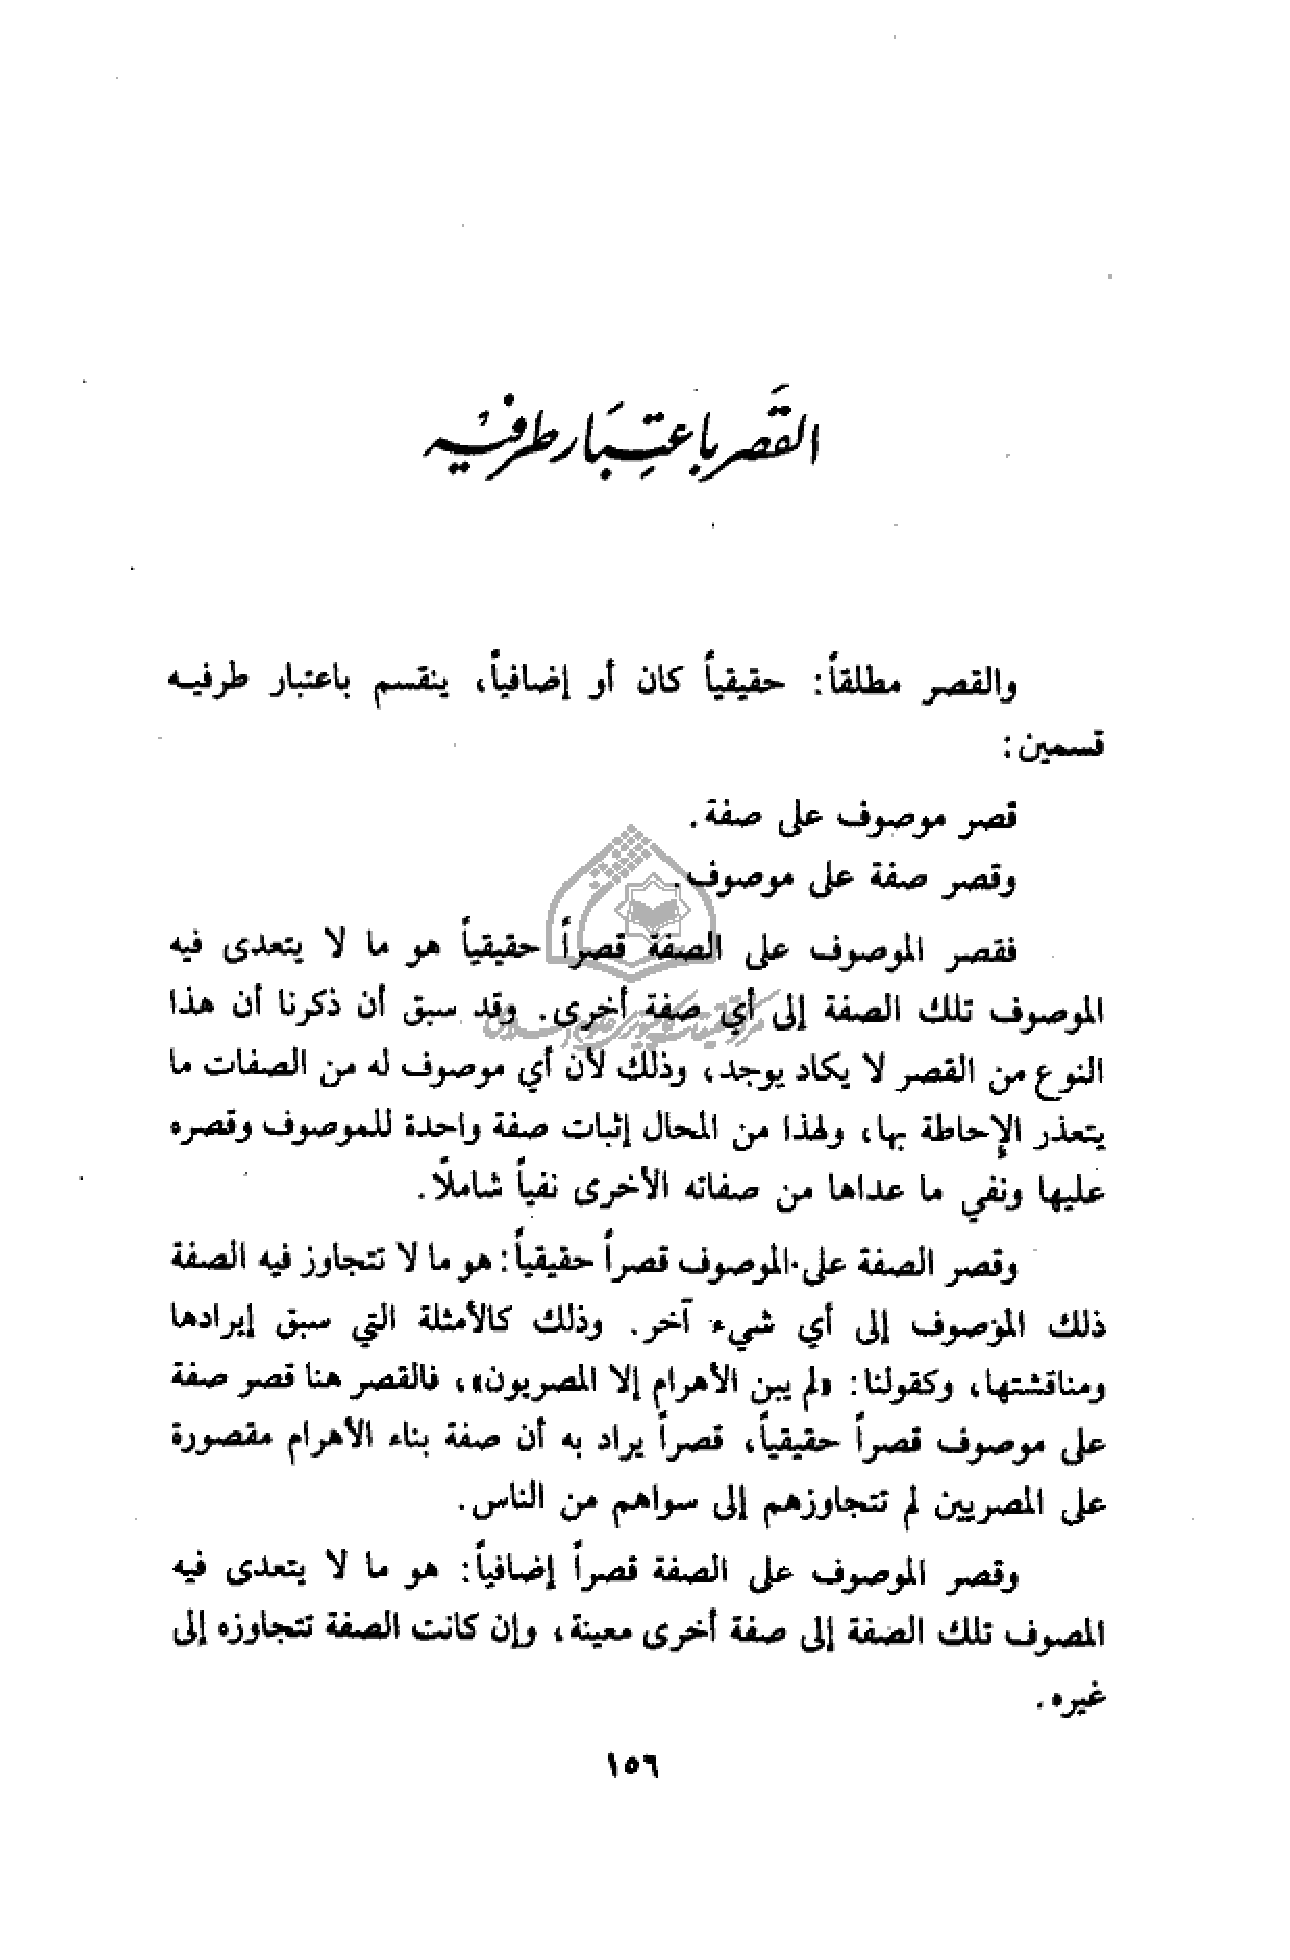 القَصر باعتِبَار طرفيْه
والقصر مطلقاً: حقيقياً كان أو إضافياً، ينقسم باعتبار طرفيه
قسمين:
قصر موصوف على صفة.
وقصر صفة على موصوف.
فقصر الموصوف على الصفة قصراً حقيقياً هو ما لا يتعدى فيه
الموصوف تلك الصفة إلى أي صفة أخرى. وقد سبق أن ذكرنا أن هذا
النوع من القصر لا يكاد يوجد، وذلك لأن أي موصوف له من الصفات ما
يتعذر الإحاطة بها، ولهذا من المحال إثبات صفة واحدة للموصوف وقصره
عليها ونفي ما عداها من صفاته الأخرى نفياً شاملاً.
وقصر الصفة على الموصوف قصراً حقيقياً: هو ما لا تتجاوز فيه الصفة
ذلك الموصوف إلى أي شيء آخر. وذلك كالأمثلة التي سبق إيرادها
ومناقشتها، وكقولنا: «لم يبن الأهرام إلا المصريون»، فالقصر هنا قصر صفة
على موصوف قصراً حقيقياً، قصراً يراد به أن صفة بناء الأهرام مقصورة
على المصريين لم تتجاوزهم إلى سواهم من الناس.
وقصر الموصوف على الصفة قصراً إضافياً: هو ما لا يتعدى فيه
المصوف تلك الصفة إلى صفة أخرى معينة، وإن كانت الصفة تتجاوزه إلى
غيره.
١٥٦